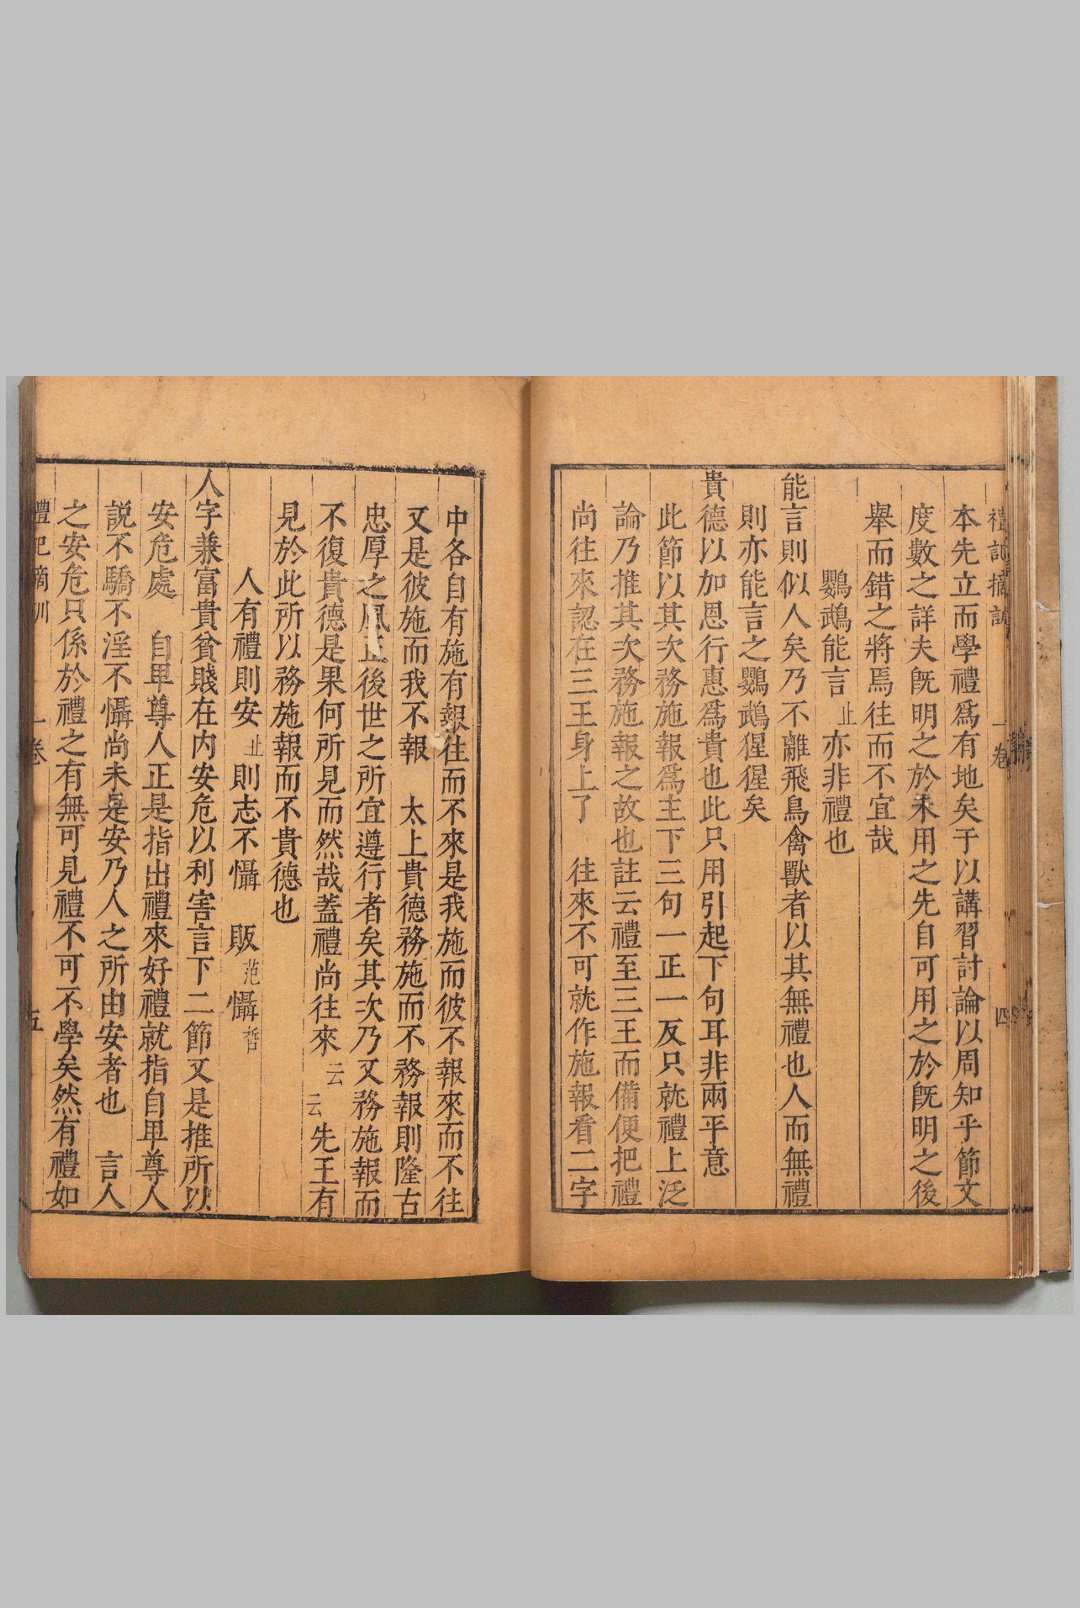 禮記摘訓 一卷 四
本先立而學禮爲有地矣于以講習討論以周知乎節文
度數之詳夫旣明之於未用之先自可用之於旣明之後
舉而錯之將焉往而不宜哉
鸚鵡能言止亦非禮也
能言則似人矣乃不離飛鳥禽獸者以其無禮也人而無禮
則亦能言之鸚鵡猩猩矣
貴德以加恩行惠爲貴也此只用引起下句耳非兩平意
此節以其次務施報爲主下三句一正一反只就禮上泛
論乃推其次務施報之故也註云禮至三王而備便把禮
尚往來認在三王身上了 往來不可就作施報看二字
中各自有施有報往而不來是我施而彼不報來而不往
又是彼施而我不報 太上貴德務施而不務報則隆古
忠厚之風直後世之所宜遵行者矣其次乃又務施報而
不復貴德是果何所見而然哉蓋禮尚往來云云先王有
見於此所以務施報而不貴德也
人有禮則安止則志不懾 販范懾哲
人字兼富貴貧賤在內安危以利害言下二節又是推所以
安危處 自卑尊人正是指出禮來好禮就指自卑尊人
説不驕不淫不懾尚未是安乃人之所由安者也 言人
之安危只係於禮之有無可見禮不可不學矣然有禮如
禮記摘訓 一卷 五